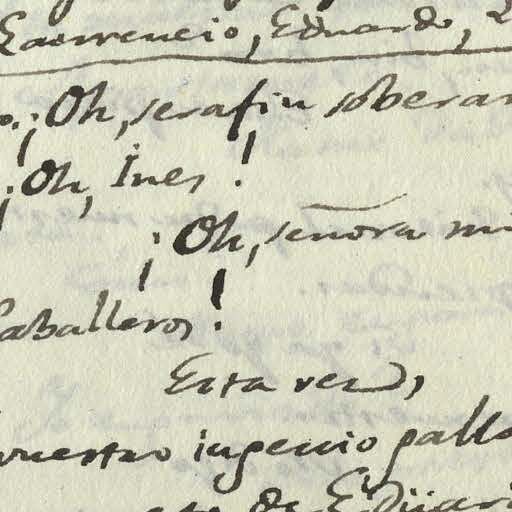 Laurencio, Eduardo,
¡Oh, serafin soberan
¡Oh, Ines!
¡Oh, señora mi
Caballeros!
Esta vez,
vuestro ingenio galla
de Eduar